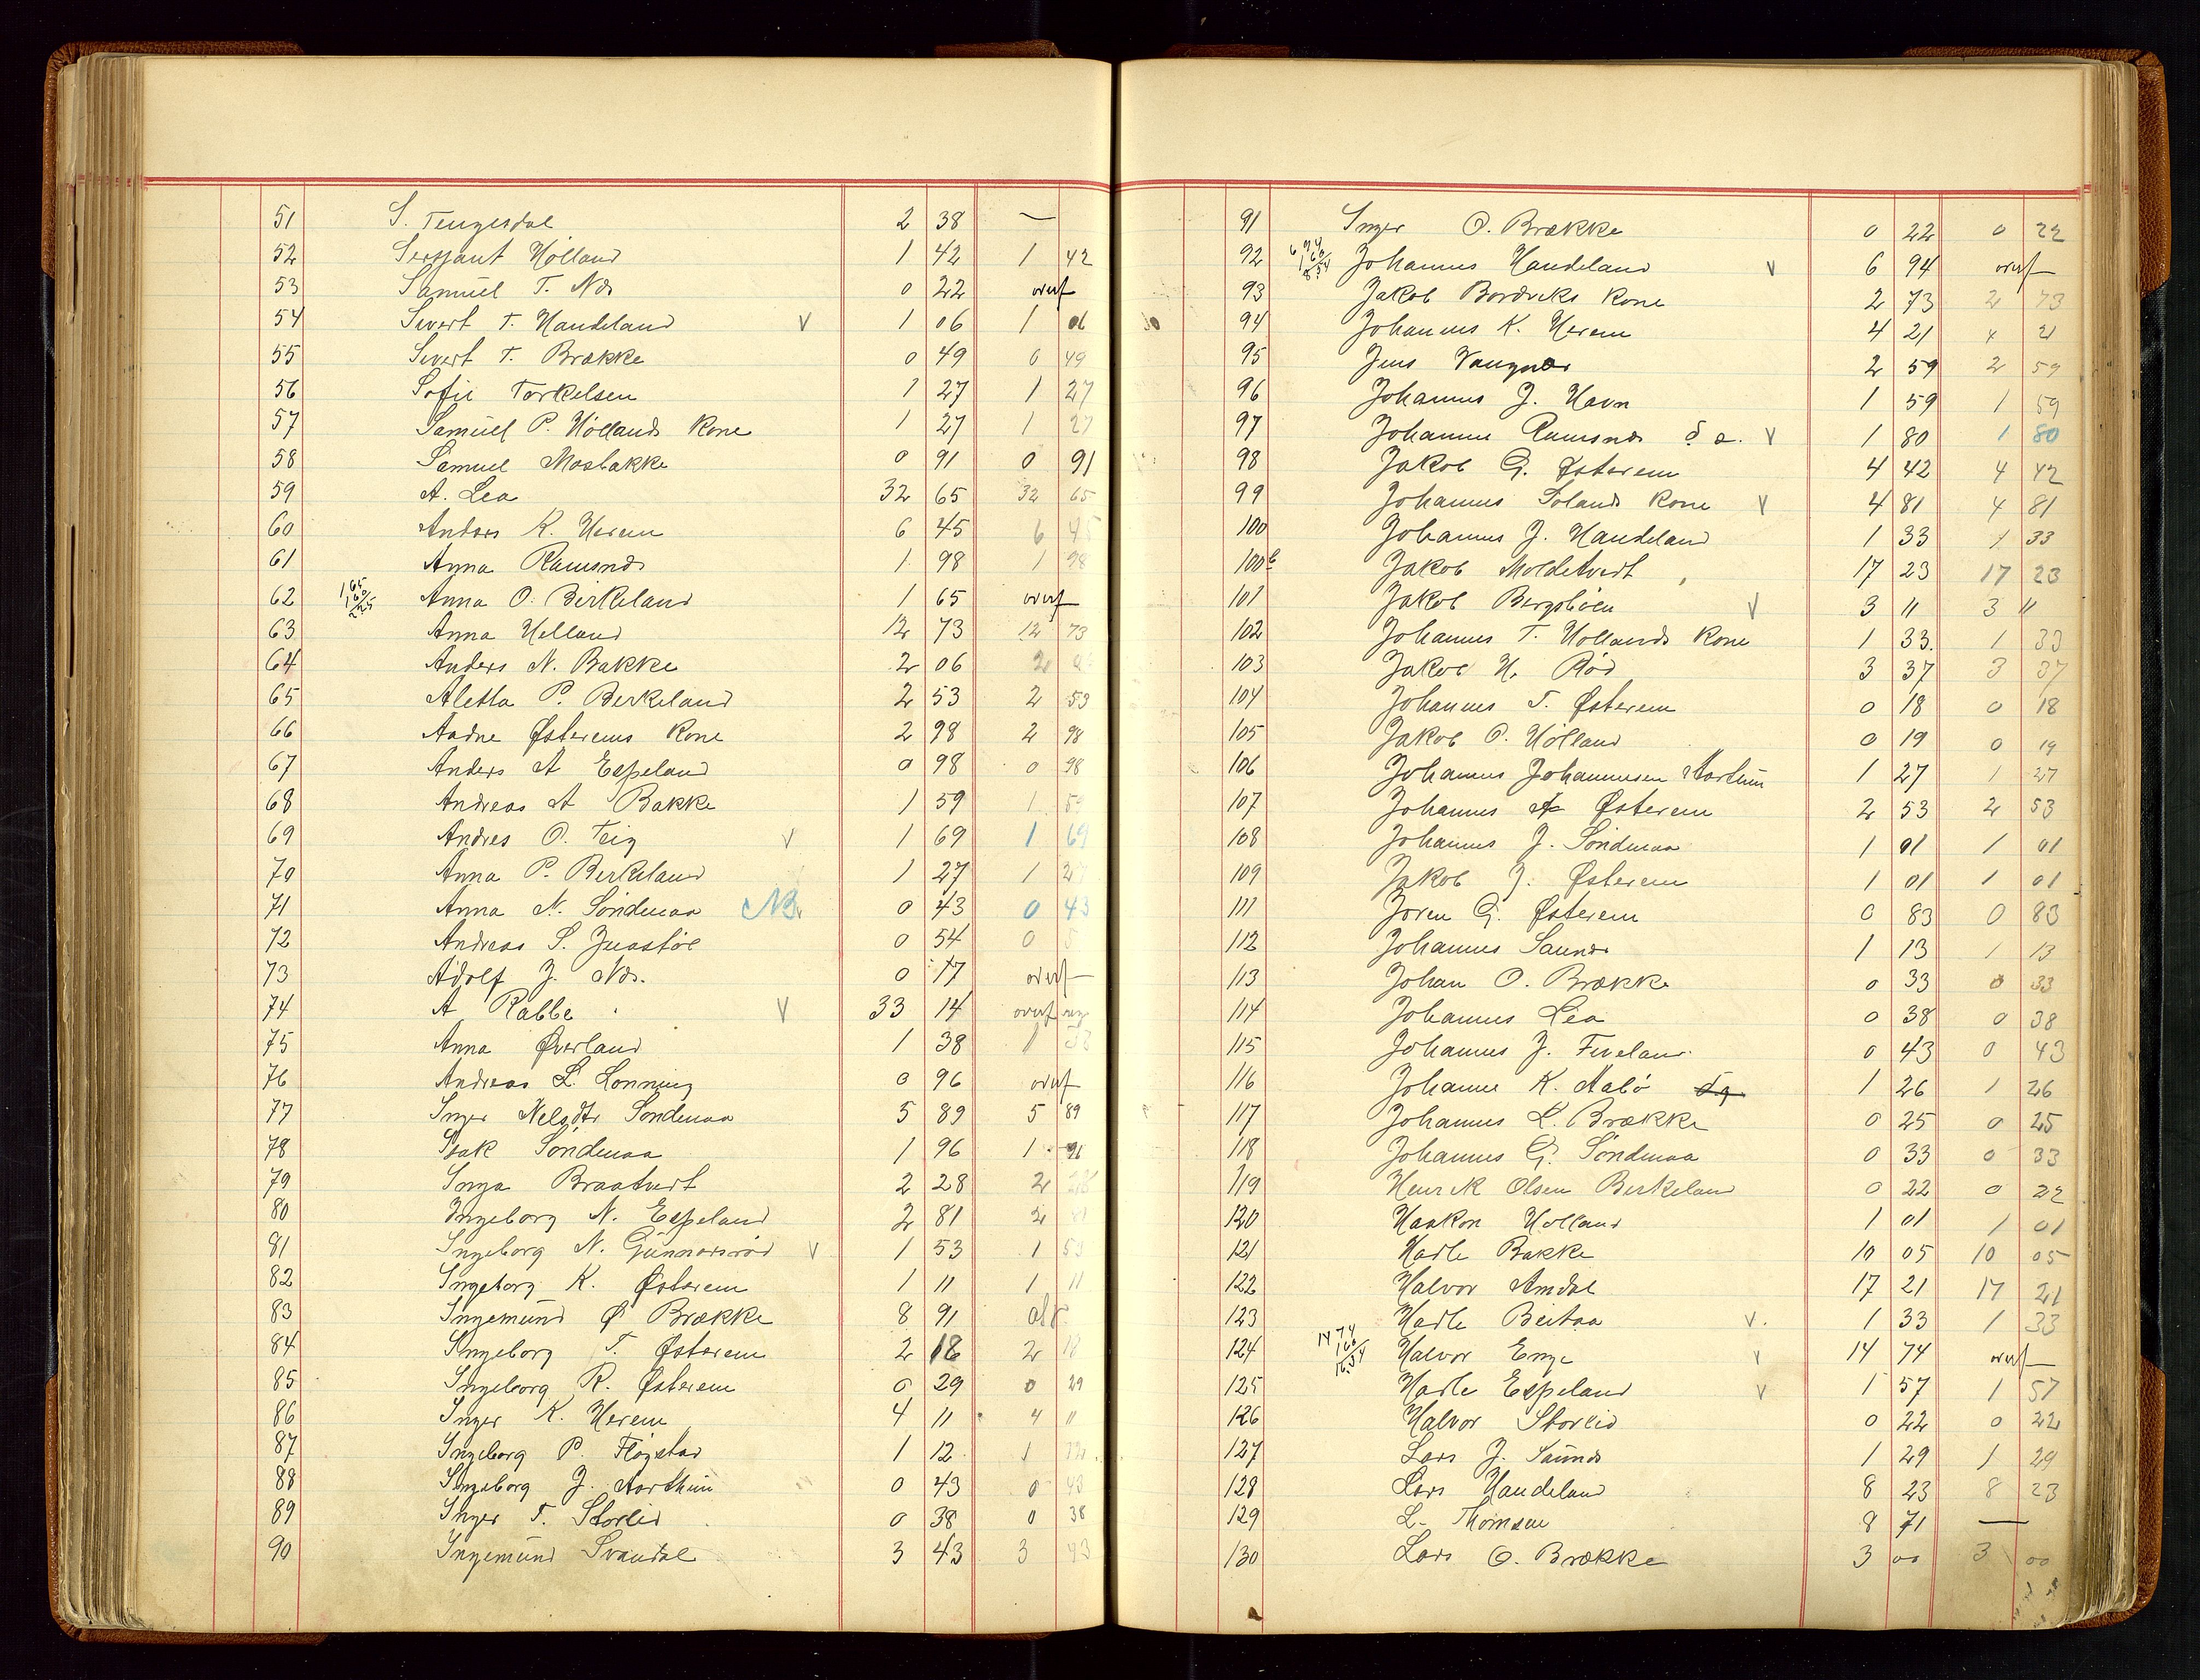 51 S. Tengesdal 2 38 —
52 Sersjant Hölland 1 42 1 42
53 Samuel T. Nds 0 22 overf
54 Sivert T. Handeland V 1 06 1 06
55 Sivert T. Brække 0 49 0 49
56 Sofie Torkelsen 1 27 1 27
57 Samuel P. Höllands Kone 1 27 1 27
58 Samuel Mosbakke 0 91 0 91
59 A. Lea 32 65 32 65
60 Anders K. Herem 6 45 6 45
61 Anna Ramsnds 1 98 1 98
62 Anna O. Birkeland 1 65 overf
63 Anna Helland 12 73 12 73
64 Anders N. Bakke 2 06 2
65 Aletta P. Berkeland 2 53 2 53
66 Aadne Østerems Kone 2 98 2 98
67 Anders A Espeland 0 98 0 98
68 Andreas A Bakke 1 59 1 59
69 Andres O. Teig V 1 69 1 69
70 Anna P. Berkeland 1 27 1 27
71 Anna N. Söndenaa NB 0 43 0 43
72 Andreas S. Juastöl 0 54 0 5
73 Adolf J. Nds. 0 17 overf
74 A Rabbe V 33 14 overf
75 Anna Øverland 1 38 1 38
76 Andreas L. Lonning 0 96 overf
77 Inger Nelsdtr Sondenaa 5 89 5 89
78 Isak Söndenaa 1 96 1 96
79 Inga Braatveit 2 28 2 28
80 Ingeborg N. Espeland 2 81 2 81
81 Ingeborg N. Gunnarsröd V 1 53 1 53
82 Ingeborg K. Østerem 1 11 1 11
83 Ingemund Ø Brække 8 91
84 Ingeborg T. Østerem 2 18 2 18
85 Ingeborg R. Østerem 0 29 0 29
86 Inger K. Herem 4 11 4 11
87 Ingeborg P. Flögstad 1 12 1 12
88 Ingeborg J. Aarthun 0 43 0 43
89 Inger T. Storlid 0 38 0 38
90 Ingemund Svandal 3 43 3 43
91 Inger O. Brække 0 22 0 22
92 Johannes Handeland V 6 94 overf
93 Jakob Bordviks Kone 2 73 2 73
94 Johannes K. Herem 4 21 4 21
95 Jens Vangnes 2 59 2 59
96 Johannes J. Havn 1 59 1 59
97 Johanne Ramsnds V 1 80 1 80
98 Jakob G. Østerem 4 42 4 42
99 Johannes Solands Kone V 4 81 4 81
100 Johannes J. Handeland 1 33 1 33
100b Jakob Moldetvedt 17 23 17 23
101 Jakob Bergsböen V 3 11 3 11
102 Johannes T. Hollands Kone 1 33 1 33
103 Jakob H. Röd 3 37 3 37
104 Johannes T. Østerem 0 18 0 18
105 Jakob O. Hölland 0 19 0 19
106 Johannes Johannesen Aartun 1 27 1 27
107 Johannes A Østerem 2 53 2 53
108 Johannes J. Söndenaa 1 01 1 01
109 Jakob J. Østerem 1 01 1 01
111 Joren G. Østerem 0 83 0 83
112 Johannes Saunds 1 13 1 13
113 Johan O. Brække 0 33 0 33
114 Johannes Lea 0 38 0 38
115 Johannes J. Fiveland 0 43 0 43
116 Johanne K. Aabö 1 26 1 26
117 Johannes L. Brække 0 25 0 25
118 Johannes G. Söndenaa 0 33 0 33
119 Henrik Olsen Berkeland 0 22 0 22
120 Haakon Holland 1 01 1 01
121 Hadle Bakke 10 05 10 05
122 Halvor Amdal 17 21 17 21
123 Hadle Beitaa V. 1 33 1 33
124 Halvor Enge V 14 74 overf
125 Hadle Espeland V 1 57 1 57
126 Halvor Storlid 0 22 0 22
127 Lars J. Saunds 1 29 1 29
128 Lars Handeland 8 23 8 23
129 L. Thomsen 8 71 —
130 Lars O. Brække 3 00 3 00